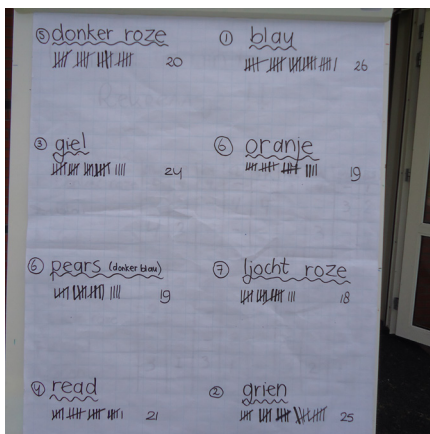 ⑤ donker roze
20
① blau
26
③ giel
24
⑥ oranje
19
⑥ pears (donker blau)
19
⑦ ljocht roze
18
④ read
21
② grien
25